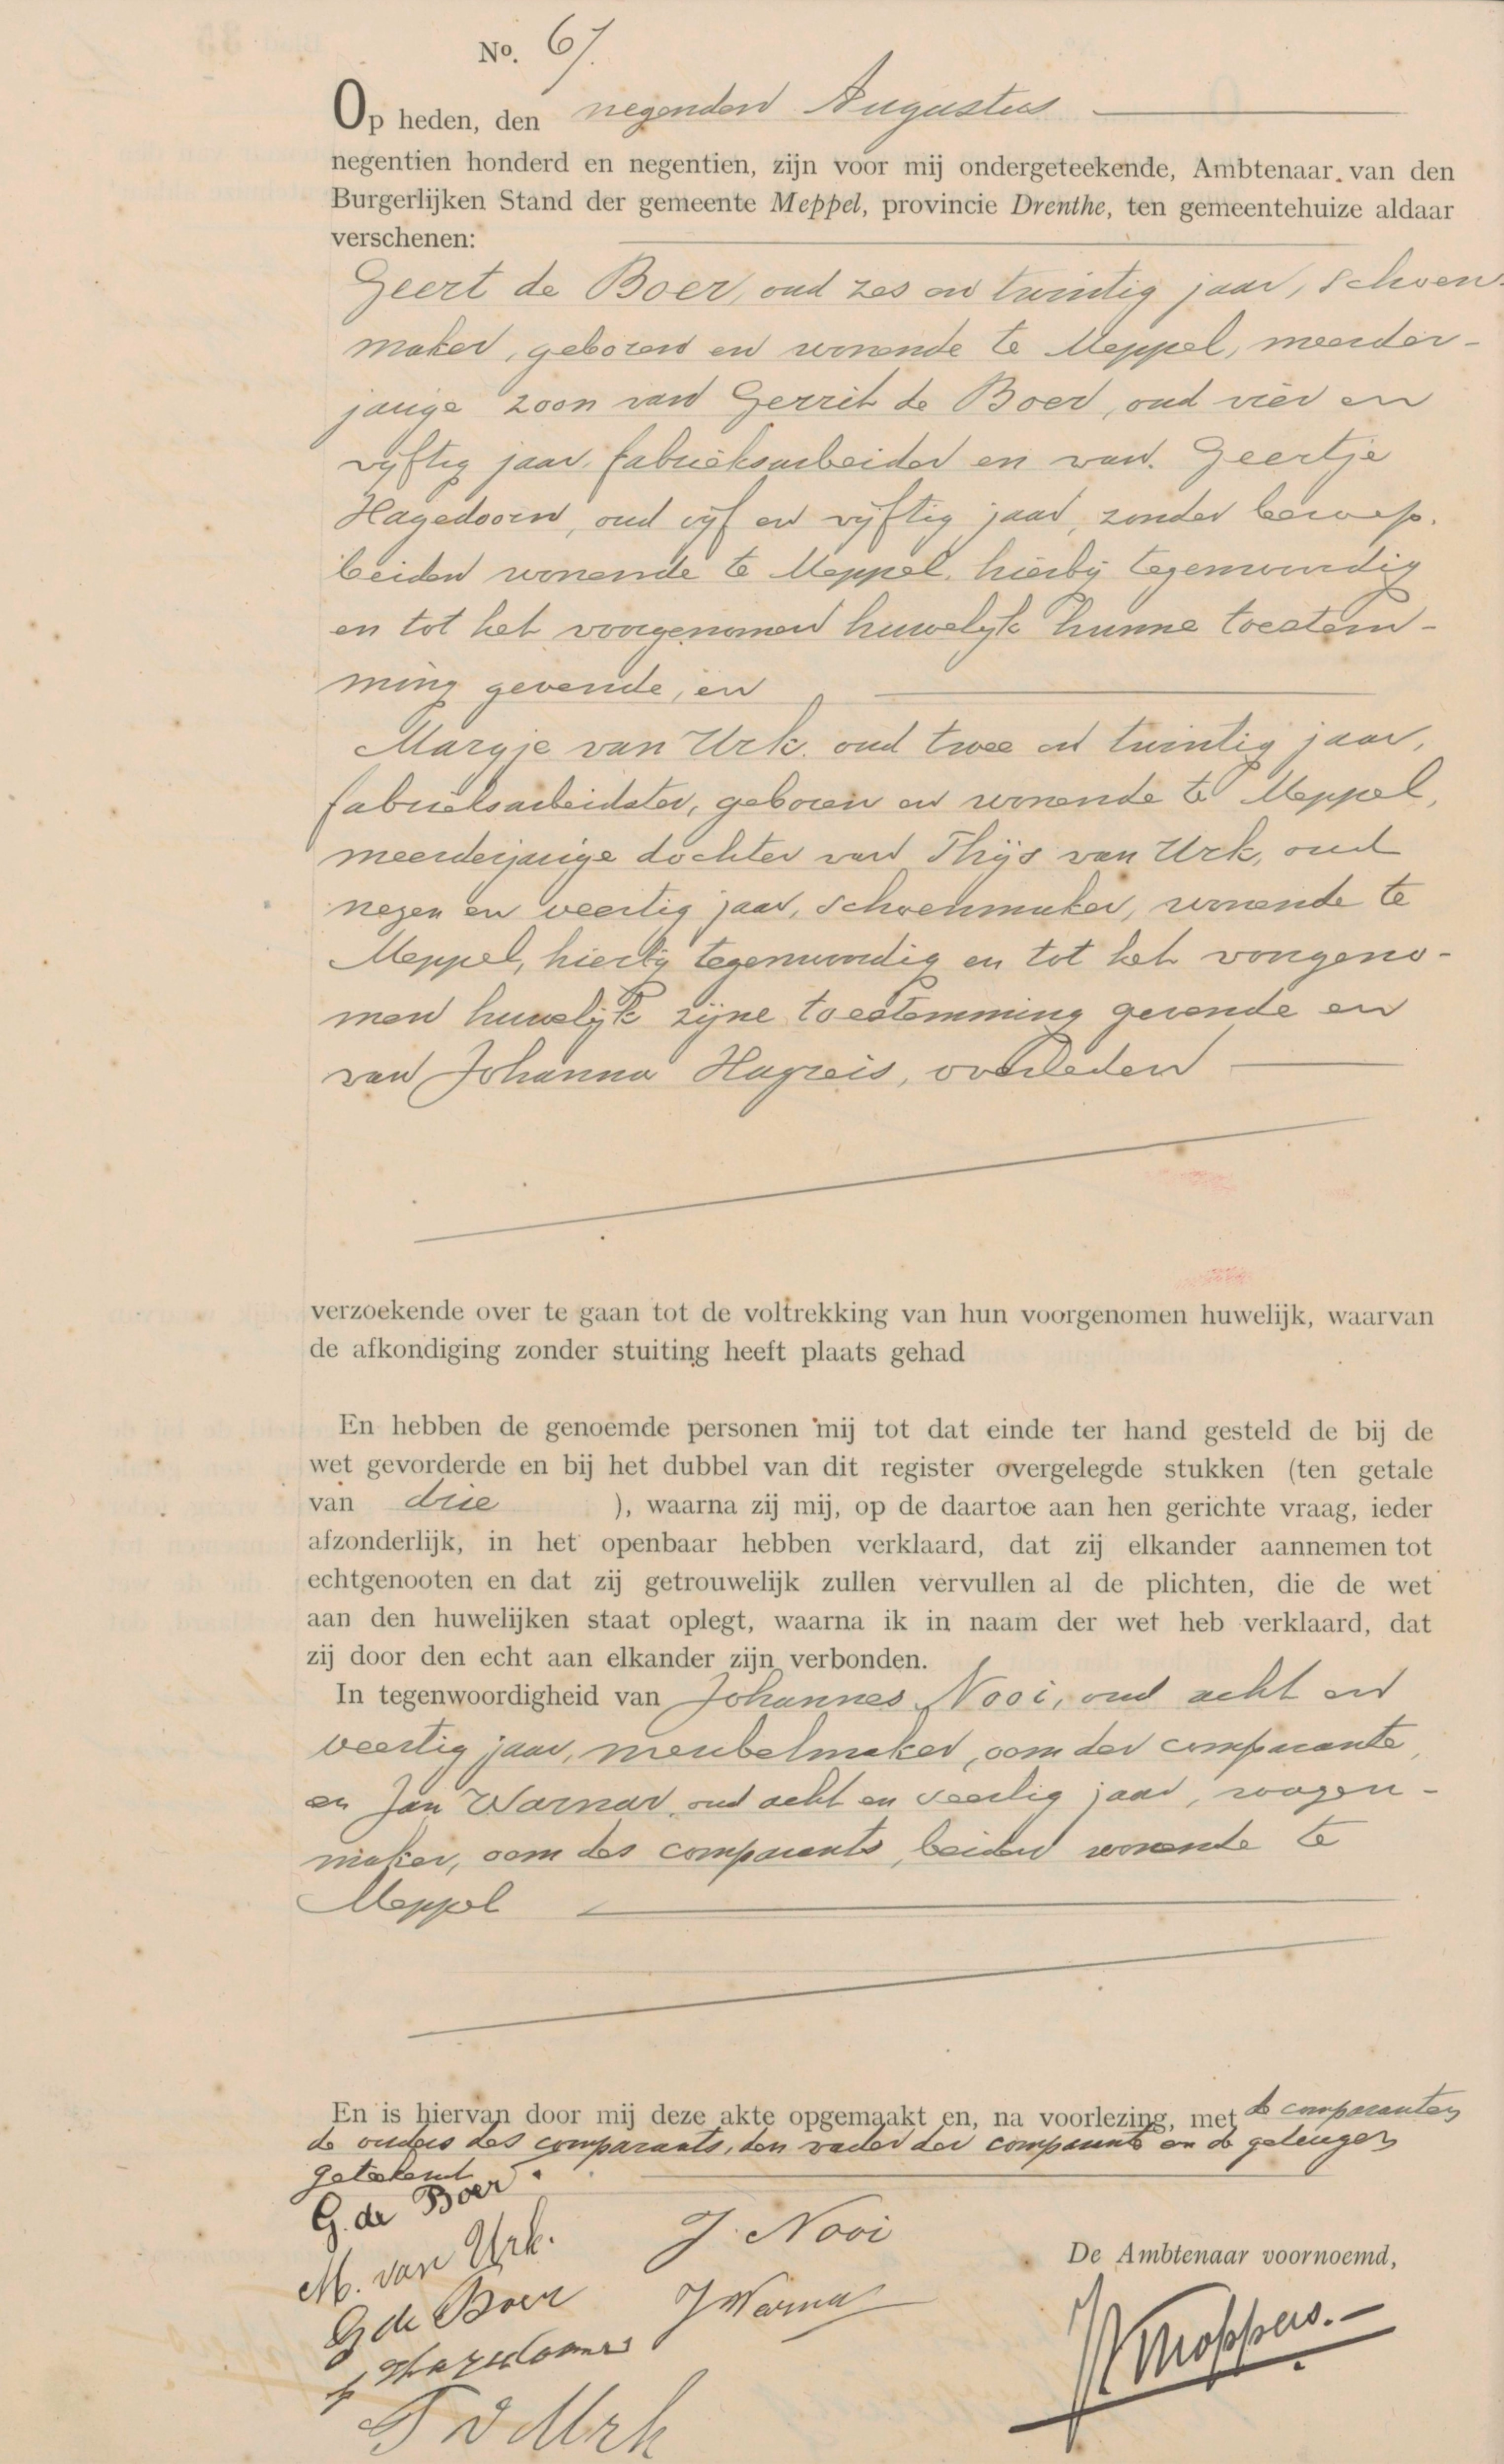 No. 67.
Op heden, den negenden Augustus
negentien honderd en negentien, zijn voor mij ondergeteekende, Ambtenaar van den
Burgerlijken Stand der gemeente Meppel, provincie Drenthe, ten gemeentehuize aldaar
verschenen:
Geert de Boer, oud zes en twintig jaar, schoen-
maker, geboren en wonende te Meppel, meerder-
jarige zoon van Gerrit de Boer, oud vier en
vijftig jaar, fabrieksarbeider en van Geertje
Hagedoorn, oud vijf en vijftig jaar, zonder beroep,
beiden wonende te Meppel, hierbij tegenwoordig
en tot het voorgenomen huwelijk hunne toestem-
ming gevende, en
Margje van Urk, oud twee en twintig jaar,
fabrieksarbeidster, geboren en wonende te Meppel,
meerderjarige dochter van Thijs van Urk, oud
negen en veertig jaar, schoenmaker, wonende te
Meppel, hierbij tegenwoordig en tot het voorgeno-
men huwelijk zijne toestemming gevende en
van Johanna Hagreis, overleden
verzoekende over te gaan tot de voltrekking van hun voorgenomen huwelijk, waarvan
de afkondiging zonder stuiting heeft plaats gehad
En hebben de genoemde personen mij tot dat einde ter hand gesteld de bij de
wet gevorderde en bij het dubbel van dit register overgelegde stukken (ten getale
van drie ), waarna zij mij, op de daartoe aan hen gerichte vraag, ieder
afzonderlijk, in het openbaar hebben verklaard, dat zij elkander aannemen tot
echtgenooten en dat zij getrouwelijk zullen vervullen al de plichten, die de wet
aan den huwelijken staat oplegt, waarna ik in naam der wet heb verklaard, dat
zij door den echt aan elkander zijn verbonden.
In tegenwoordigheid van Johannes Nooi, oud acht en
veertig jaar, meubelmaker, oom der comparante,
en Jan Warnar, oud acht en veertig jaar, wagen-
maker, oom des comparants, beiden wonende te
Meppel
En is hiervan door mij deze akte opgemaakt en, na voorlezing, met de comparanten
de ouders des comparants, den vader der comparante en de getuigen
geteekend.
G. de Boer
M. van Urk.
J. Nooi
De Ambtenaar voornoemd,
G de Boer
J Warnar
G Hagedoorn
T v Urk